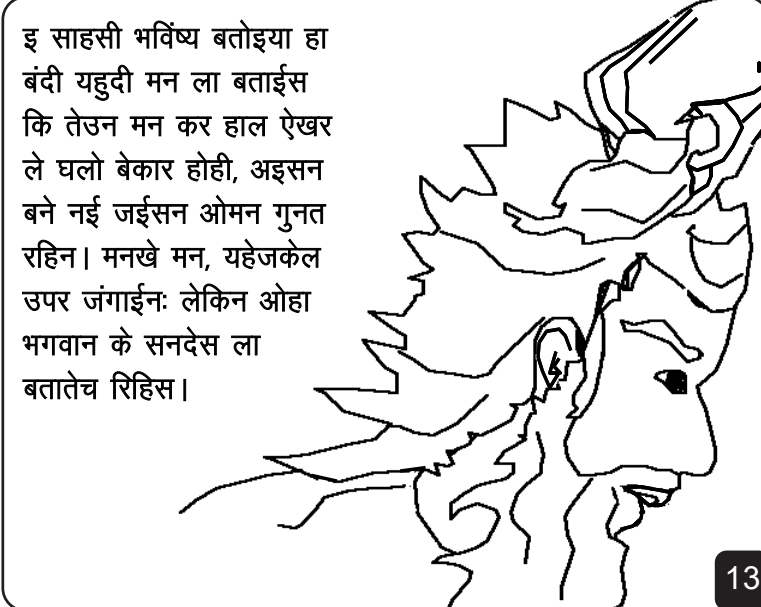 इ साहसी भविंष्य बतोइया हा
बंदी यहुदी मन ला बताईस
कि तेउन मन कर हाल ऐखर
ले घलो बेकार होही, अइसन
बने नई जईसन ओमन गुनत
रहिन। मनखे मन, यहेजकेल
उपर जंगाईनः लेकिन ओहा
भगवान के सनदेस ला
बतातेच रिहिस।
13